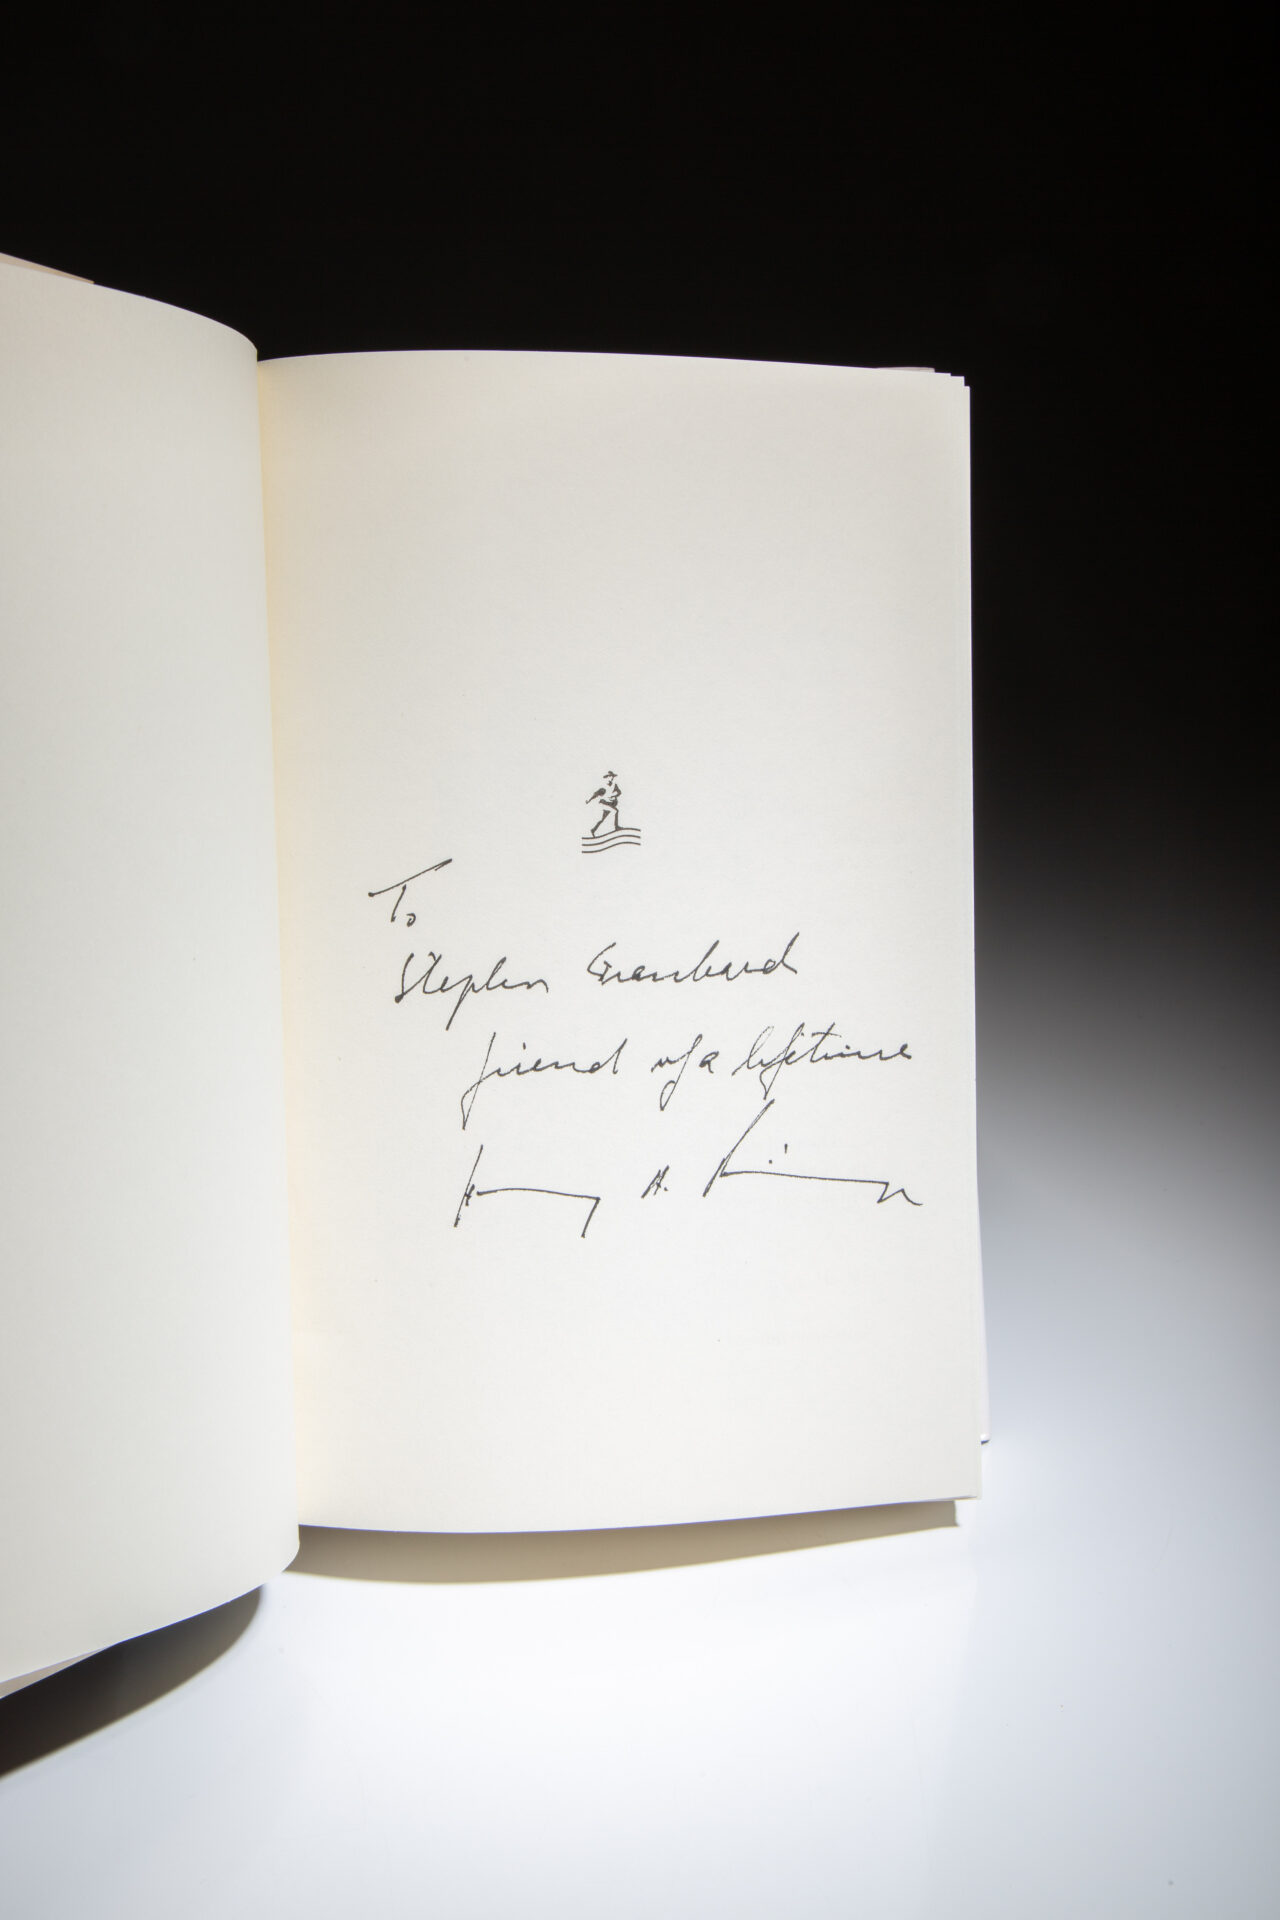 To
Stephen Graubard
friend of a lifetime
Henry A. Kissinger